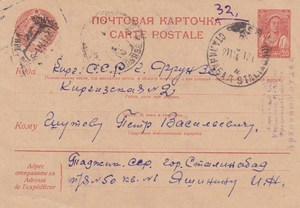 32,
ПОЧТОВАЯ КАРТОЧКА
CARTE POSTALE
Куда Кирг. С.С.Р. г. Фрунзе
Киргизская № 2
Кому Шутову Петр Васильевич,
Адрес
отправителя
Adresse
de l'expéditeur
Таджик. ССР. гор. Сталинабад
п/я № 50 кв. № 1 Яшинину И.Н.